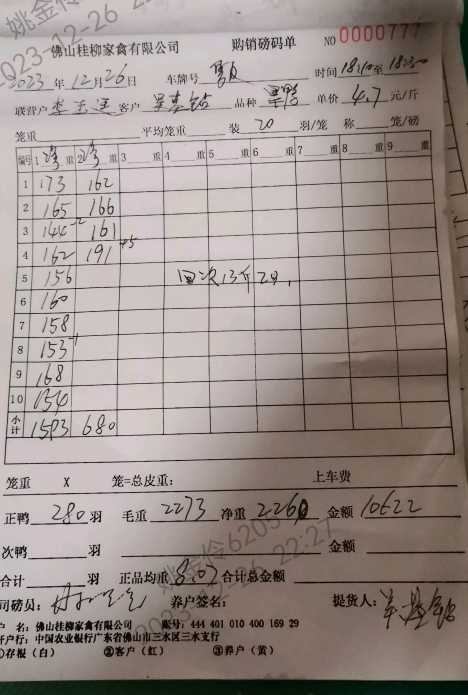 佛山桂柳家禽有限公司 购销磅码单 NO 0000777
2023年12月26日 车牌号 时间 18:10至18:30
联营户 客户 吴基钻 品种 单价 4.7 元/斤
笼重 平均笼重 装 20 羽/笼 称 笼/磅
编号 1 重 2 重 3 重 4 重 5 重 6 重 7 重 8 重 9 重
1 173 162
2 165 166
3 144-2 161
4 162 191+5
5 156 回次13斤2只
6 160
7 158
8 153-1
9 168
10 154
小计 1593 680
笼重 X 笼=总皮重: 上车费
正鸭 280 羽 毛重 2273 净重 2260 金额 10622
次鸭 羽 金额
合计 羽 正品均重 8.07 合计总金额
司磅员: 养户签名: 提货人:
户 名: 佛山桂柳家禽有限公司 账号: 444 401 010 400 169 29
开户行: 中国农业银行广东省佛山市三水区三水支行
①存根(白) ②客户(红) ③养户(黄)
姚金伶6203
2023-12-26 22:27